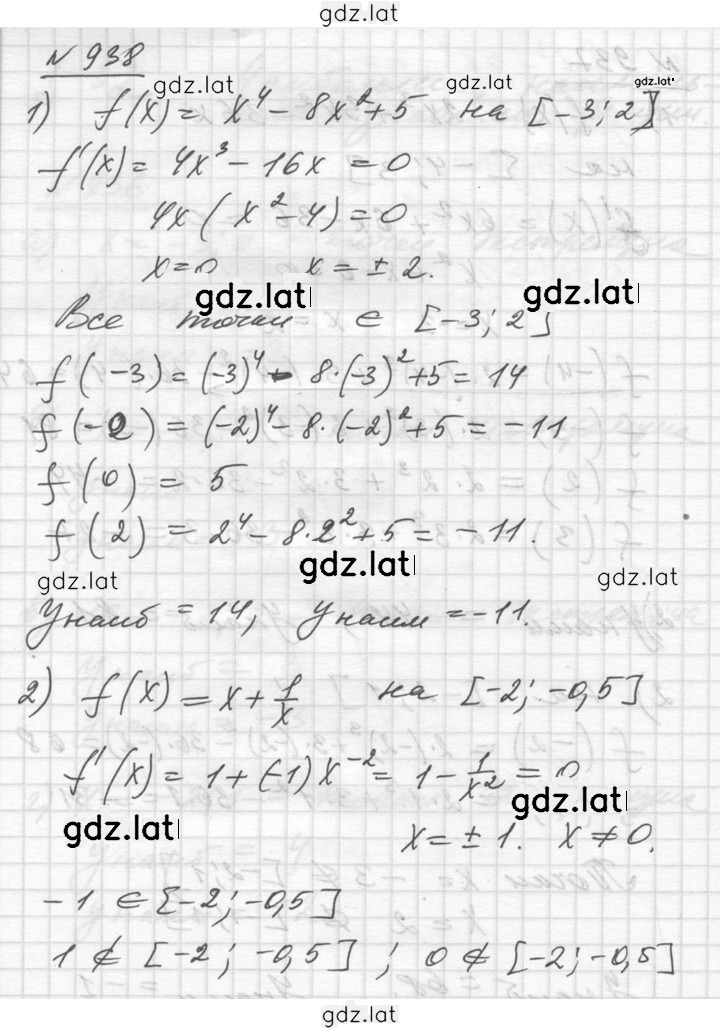 gdz.lat
N 938
gdz.lat gdz.lat gdz.lat
1) f(x) = x⁴ - 8x² + 5 на [-3; 2]
f'(x) = 4x³ - 16x = 0
4x(x² - 4) = 0
x = 0 x = ± 2.
gdz.lat gdz.lat
Все точки ∈ [-3; 2]
f(-3) = (-3)⁴ - 8·(-3)² + 5 = 14
f(-2) = (-2)⁴ - 8·(-2)² + 5 = -11
f(0) = 5
f(2) = 2⁴ - 8·2² + 5 = -11.
gdz.lat gdz.lat gdz.lat
Yнаиб = 14, yнаим = -11.
2) f(x) = x + 1/x на [-2; -0,5]
f'(x) = 1 + (-1)x⁻² = 1 - 1/x² = 0
gdz.lat gdz.lat
x = ± 1. x ≠ 0.
-1 ∈ [-2; -0,5]
1 ∉ [-2; -0,5] ; 0 ∉ [-2; -0,5]
gdz.lat